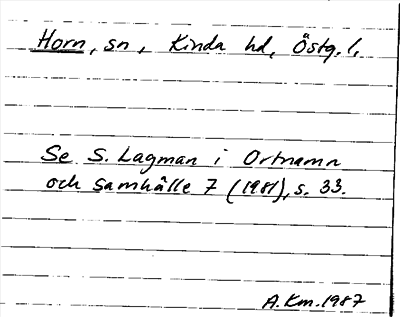 Horn, sn, Kinda hd, Östg. l.
Se S. Lagman i Ortnamn
och samhälle 7 (1981), s. 33.
A. Km. 1987